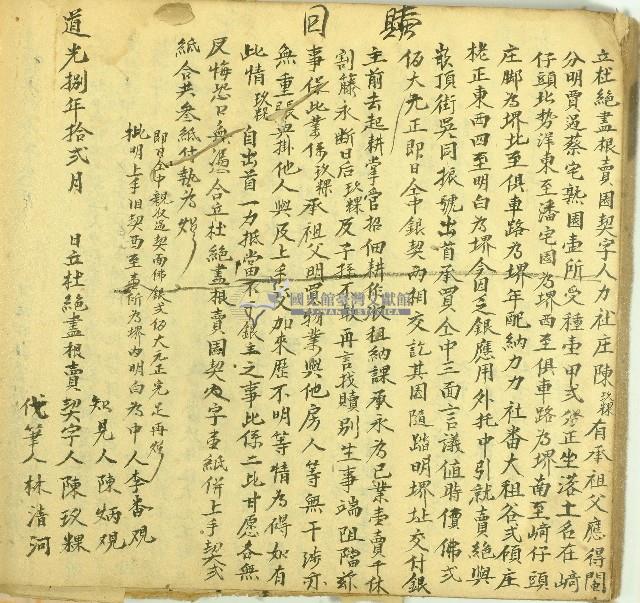 贖回
立杜絕盡根賣園契字人力社庄陳玖粿有承祖父應得鬮
分明買過蔡宅熟園壹所受種壹甲弍分正坐落土名在崎
仔頭北勢洋東至潘宅園為堺西至俱車路為堺南至崎仔頭
庄脚為堺北至俱車路為堺年配納力力社番大租谷弍傾庄
栳正東西四至明白為堺今因乏銀應用外托中引就賣絕與
崁頂街吳同振號出首承買仝中三面言議值時價佛弍
佰大元正即日仝中銀契兩相交訖其園隨踏明堺址交付銀
主前去起耕掌管招佃耕作收租納課承永為己業壹賣千休
割籐永斷日后玖粿反子孫不敢再言找贖別生事端阻陷茲
事保此業係玖粿承祖父明買物業與他房人等無干涉亦
無重張典掛他人與及上手加來歷不明等情為碍如有
此情玖粿自出首一力抵當不干銀主之事此係二比甘愿各無
反悔恐口無憑合立杜絕盡根賣園契內字壹紙併上手契弍
紙合共叁紙付執為炤
即日仝中親收過契面佛銀弍佰大元正完足再炤
批明上手旧契西至壹所為堺內明白為
中人李香覌
知見人陳炳覌
道光捌年拾弍月 日立杜絕盡根賣契字人陳玖粿
代筆人林清河
國史館臺灣文獻館
TAIWAN HISTORICA